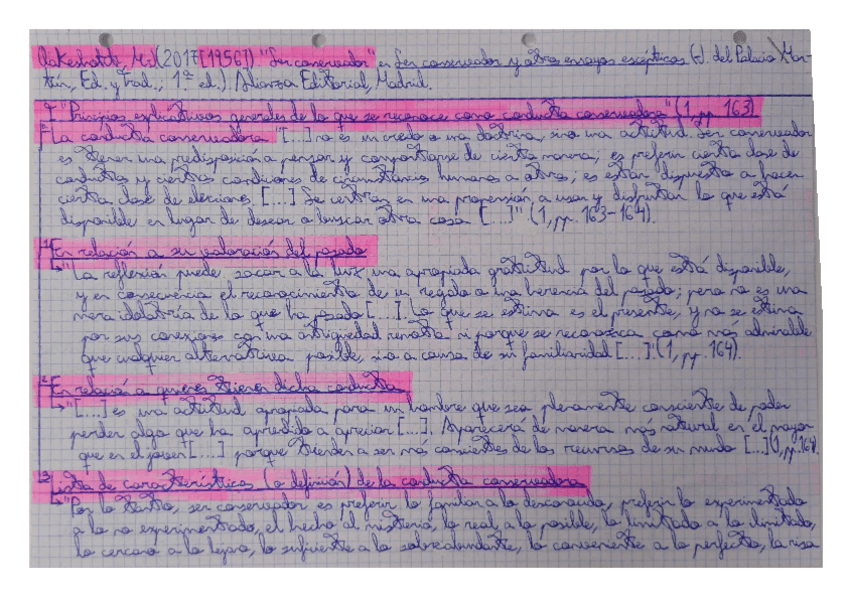 Oakeshott, M. (2017 [1956]) "Ser conservador" en Ser conservador y otros ensayos escépticos (J. del Palacio Mar-
tín, Ed. y trad., 1.ª ed.) Alianza Editorial, Madrid.
I "Principios explicativos generales de lo que se reconoce como conducta conservadora" (1, pp. 163)
La conducta conservadora "[...] no es un credo o una doctrina, sino una actitud. Ser conservador
es tener una predisposición a pensar y comportarse de cierta manera; es preferir cierta clase de
conductas y ciertas condiciones de circunstancias humanas a otras; es estar dispuesto a hacer
cierta clase de elecciones [...] Se centra en una propensión a usar y disfrutar lo que está
disponible en lugar de desear o buscar otra cosa [...]" (1, pp. 163-164).
En relación a su valoración del pasado
"La reflexión puede sacar a la luz una apropiada gratitud por lo que está disponible,
y en consecuencia el reconocimiento de un regalo o una herencia del pasado; pero no es una
mera idolatría de lo que ha pasado [...]. Lo que se estima es el presente, y no se estima
por sus conexiones con una antigüedad remota ni porque se reconozca como más admirable
que cualquier alternativa posible, sino a causa de su familiaridad [...]" (1, pp. 164).
2 En relación a quienes tienen dicha conducta
"[...] es una actitud apropiada para un hombre que sea plenamente consciente de poder
perder algo que ha aprendido a apreciar [...]. Aparecerá de manera más natural en el mayor
que en el joven [...] porque tienden a ser más conscientes de los recursos de su mundo [...] (1, pp. 164)
3 Lista de características (o definición) de la conducta conservadora
"Por lo tanto, ser conservador es preferir lo familiar a lo desconocido, preferir lo experimentado
a lo no experimentado, el hecho al misterio, lo real a lo posible, lo limitado a lo ilimitado,
lo cercano a lo lejano, lo suficiente a lo sobreabundante, lo conveniente a lo perfecto, la risa